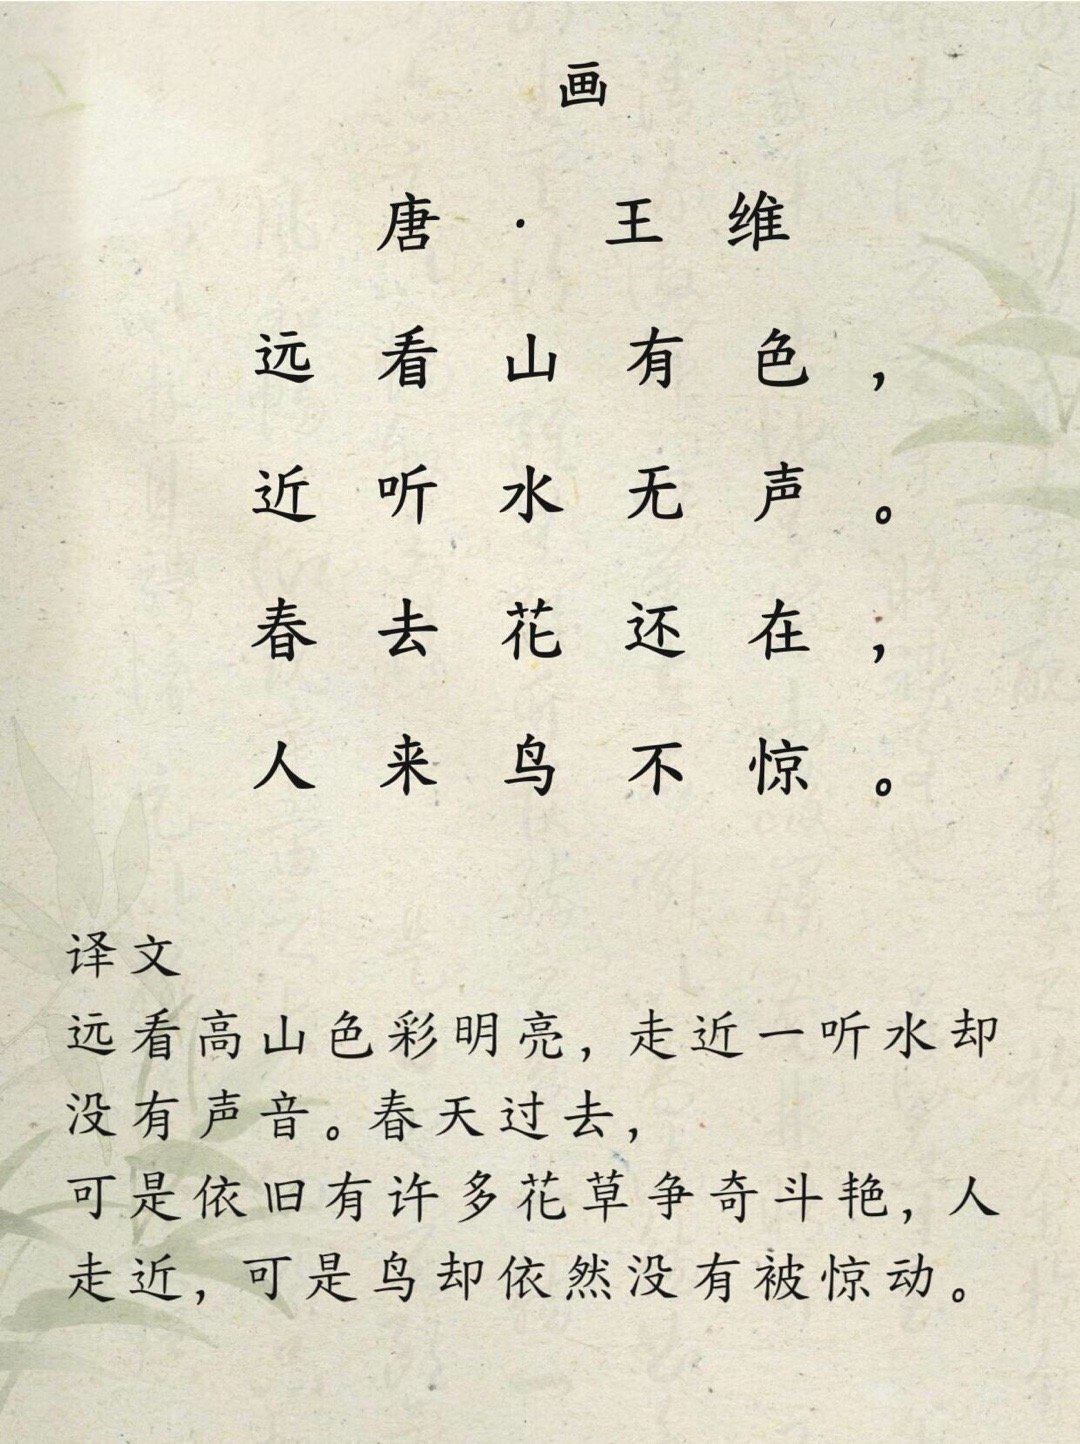 画
唐·王维
远看山有色，
近听水无声。
春去花还在，
人来鸟不惊。
译文
远看高山色彩明亮，走近一听水却
没有声音。春天过去，
可是依旧有许多花草争奇斗艳，人
走近，可是鸟却依然没有被惊动。